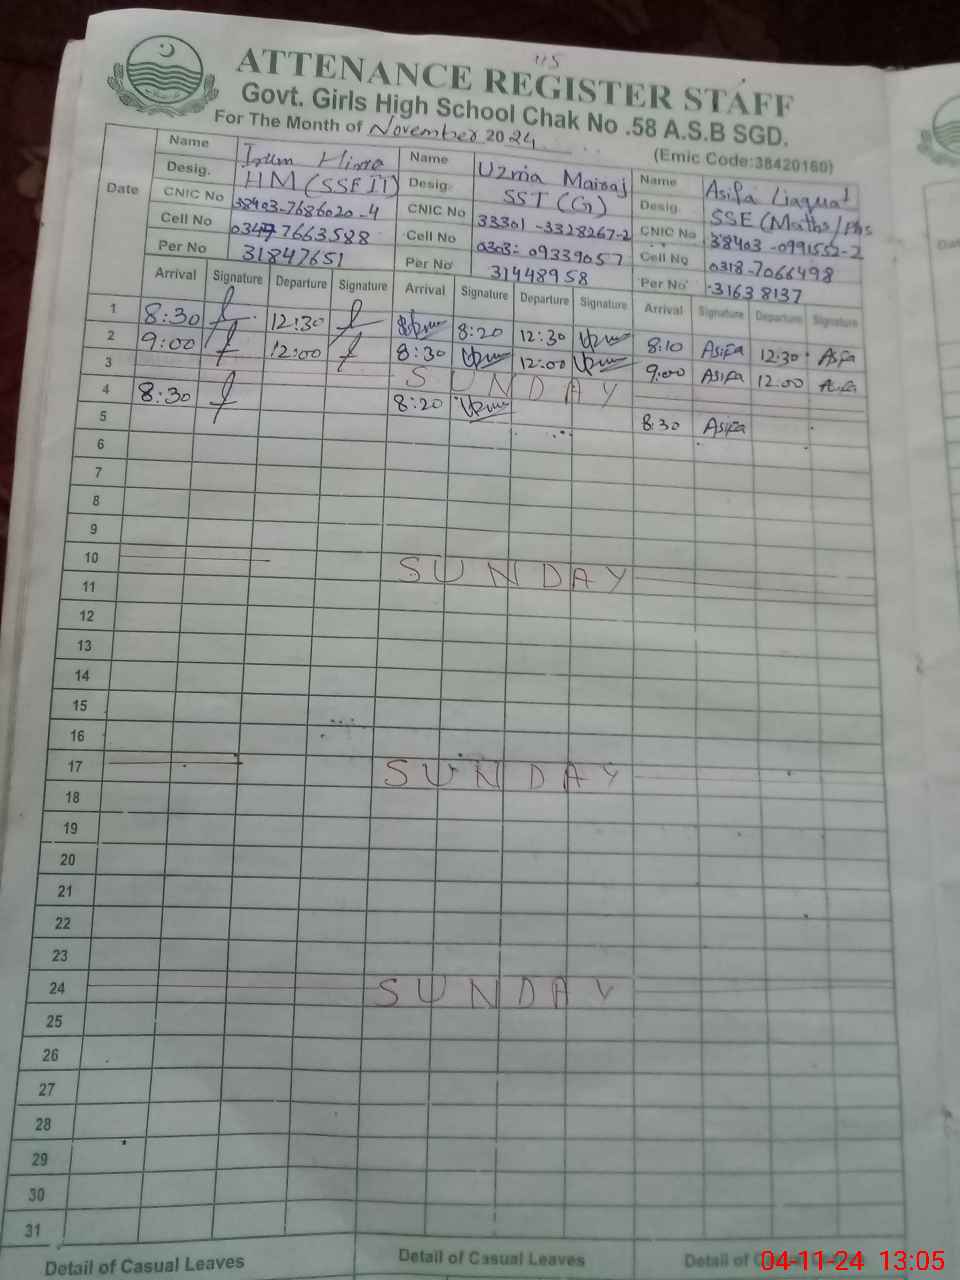 115
ATTENANCE REGISTER STAFF
Govt. Girls High School Chak No .58 A.S.B SGD.
For The Month of November 2024
(Emic Code:38420160)
Date Name Irum Hina Name Uzma Mairaj Name Asifa Liaquat
Desig. HM (SSE IT) Desig. SST (G) Desig. SSE (Maths/Phs
CNIC No 38403-7686020-4 CNIC No 33301-3328267-2 CNIC No 38403-0991552-2
Cell No 0347 7663588 Cell No 0303-09339057 Cell No 0318-7066498
Per No 31847651 Per No 31448958 Per No 31638137
Arrival Signature Departure Signature Arrival Signature Departure Signature Arrival Signature Departure Signature
1 8:30 12:30 8:20 12:30 8:10 Asifa 12:30 Asifa
2 9:00 12:00 8:30 12:00 9:00 Asifa 12:00 Asifa
3 SUNDAY
4 8:30 8:20 8:30 Asifa
5
6
7
8
9
10 SUNDAY
11
12
13
14
15
16
17 SUNDAY
18
19
20
21
22
23
24 SUNDAY
25
26
27
28
29
30
31
Detail of Casual Leaves Detail of Casual Leaves Detail of Casual Leaves
04-11-24 13:05